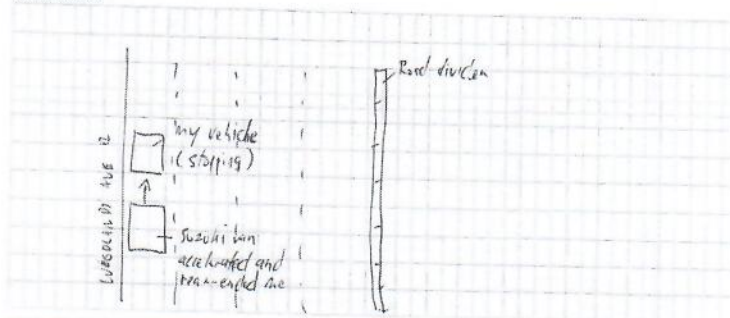 Road divider
my vehicle
(stopping)
AVE 12
Suzuki van
accelerated and
rear-ended me